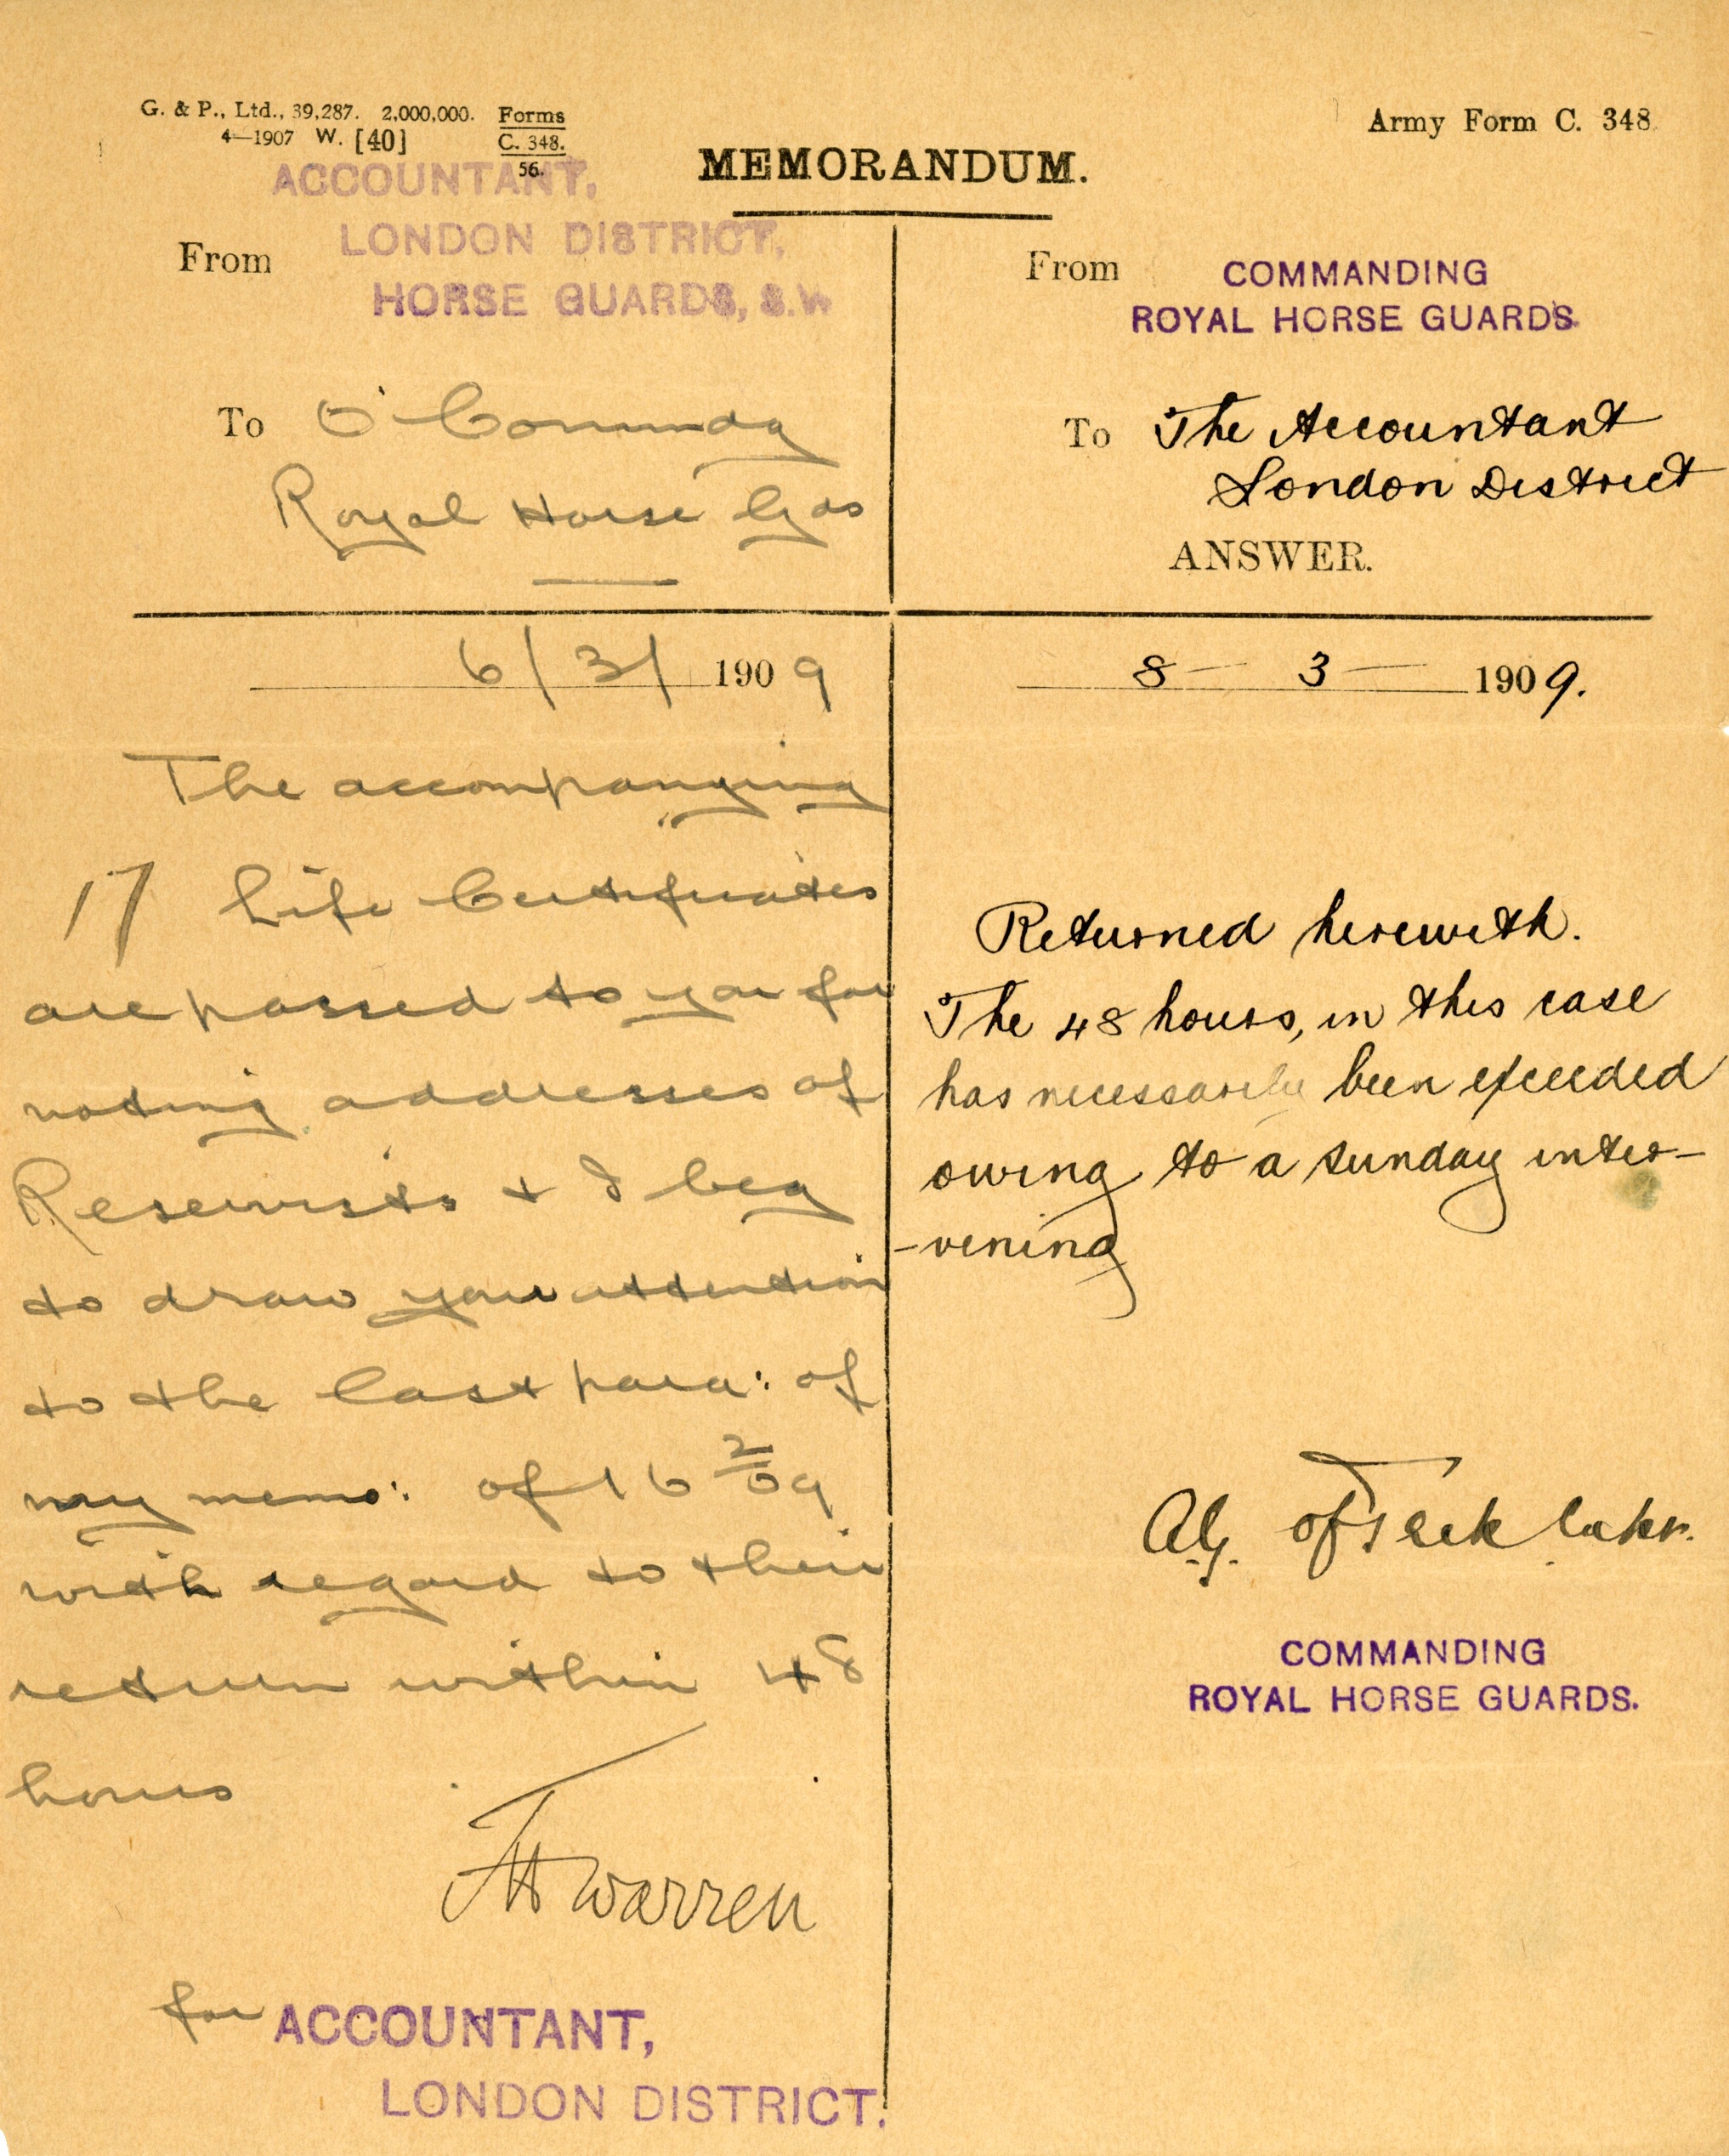 G. & P., Ltd., 39,287. 2,000,000. Forms
4—1907 W. [40] C. 348.
56.
Army Form C. 348
MEMORANDUM.
ACCOUNTANT,
LONDON DISTRICT,
From
HORSE GUARDS, S.W
To O' Commdg
Royal Horse Gds
6/3/1909
The accompanying
17 Life Certificates
are passed to you for
noting addresses of
Reservists + I beg
to draw your attention
to the last para: of
my memo: of 16 2/09
with regard to their
return within 48
hours
Warren
for ACCOUNTANT,
LONDON DISTRICT.
From COMMANDING
ROYAL HORSE GUARDS.
To The Accountant
London District
ANSWER.
8 — 3 — 1909.
Returned herewith.
The 48 hours, in this case
has necessarily been exceeded
owing to a Sunday inter-
-vening
of Teck
COMMANDING
ROYAL HORSE GUARDS.